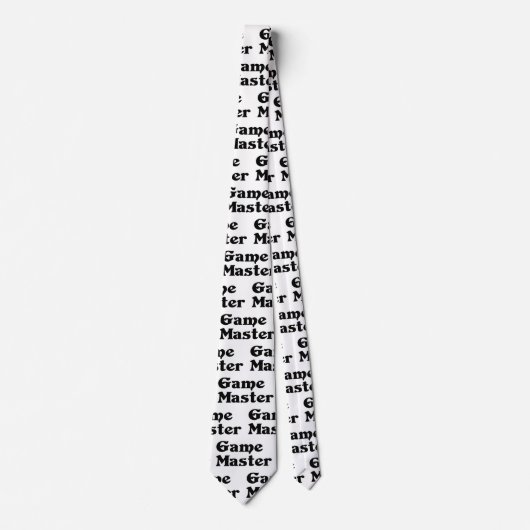 Game
Master
Game
Master
Game
Master
Game
Master
Game
Master
Game
Master
Game
Master